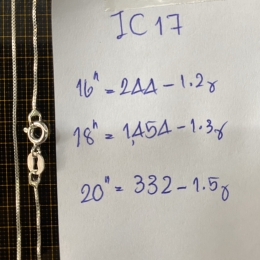 IC17
16" = 244 - 1.2g
18" = 1,454 - 1.3g
20" = 332 - 1.5g